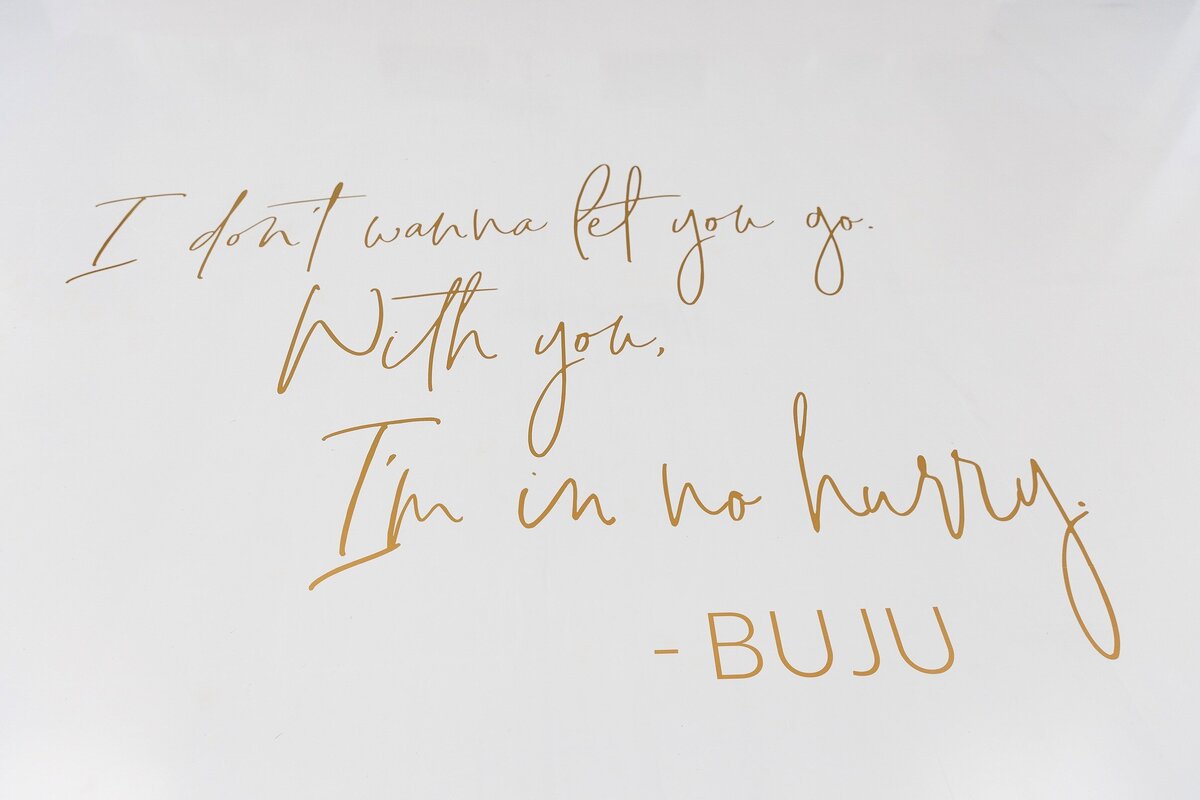 I don't wanna let you go.
With you,
I'm in no hurry.
- BUJU